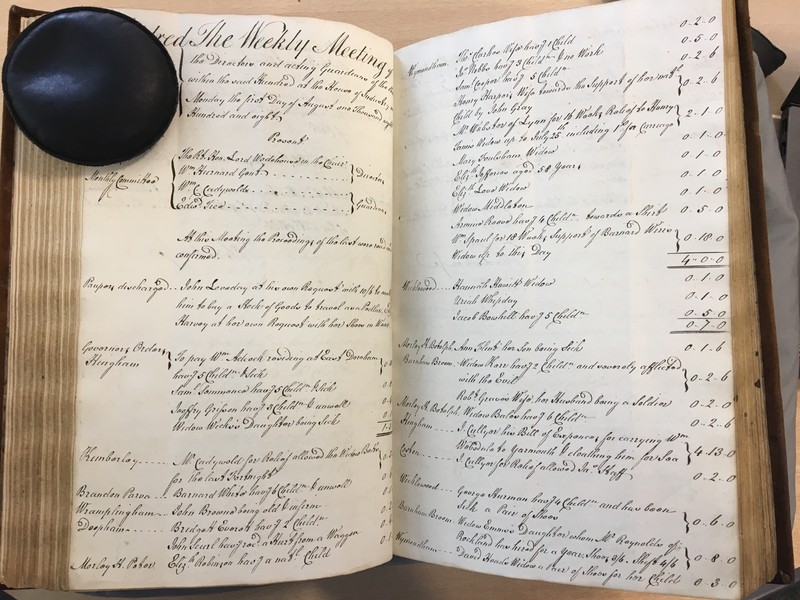 dred The Weekly Meeting of
the Directors and acting Guardians of the
within the said Hundred at the House of Industry
Monday the first Day of August one Thousand eight
Hundred and eight,
Present
The Rt. Hon. Lord Wodehouse in the Chair
Wm. Hurnard Gent
Directors
Monthly Committee
Wm. C. Cadywold
Edwd.
Guardians
At this Meeting the Proceedings of the last were read and
confirmed.
Paupers discharged .. John Loveday at her own Request with 10/6 to enable
him to buy a Stock of Goods to travel as a Pedler
Harvey at her own Request with her Show in
Governors Orders
Hingham
To pay Wm. Adcock residing at East Dereham
havg. 5 Childn. & Sick
Saml. Lammonce havg. 5 Childn. & Sick
Jeoffry Gripson havg. 3 Childn. & unwell
Widow Wicks's Daughter being Sick
Kimberley ..... Mr. Cadywold for Relief allowed the Widow
for the last Fortnight
Brandon Parva .. Barnard White havg. 6 Childn. & unwell
Wramplingham .. John Browne being old & infirm
Deopham .... Bridget Everett havg. 2 Childn.
John Searl havg. recd. a Hurt from a Waggon
Morley St. Peter Elizth. Robinson havg. a natl. Child
Wymondham. Thos. Clarkes Wife havg. 1 Child 0-2-0
Jno. Webbe havg. 3 Childn. & no Work 0-5-0
Saml. Cooper havg. 5 Childn. 0-2-6
Henry Harpers Wife towards the Support of her natl.
Child by John Clay 0-2-6
Mr. Webster of Lynn for 16 Weeks Relief to Henry
Lanes Widow up to July 25th. including 1s. for Carriage 2-1-0
Mary Foulsham Widow 0-1-0
Elizth. Jefferies aged 58 Years 0-1-0
Elizth. Love Widow 0-1-0
Widow Middleton 0-1-0
Reeve havg. 4 Childn. towards a Shirt 0-5-0
Wm. Spaul for 18 Weeks Support of Barnard Wires
Widow up to this Day 0-18-0
4-0-0
Wicklewood. Hannah Hewitt Widow 0-1-0
Uriah Whipday 0-1-0
Jacob Bowhill havg. 5 Childn. 0-5-0
0-7-0
Morley St. Botolph. Ann Flint her Son being Sick 0-1-6
Barnham Broom. Widow Kerr havg. 2 Childn. and severely afflicted
with the Evil 0-2-6
Robt. Graves Wife her Husband being a Soldier 0-2-0
Morley St. Botolph. Widow Bales havg. 6 Childn. 0-2-6
Hingham.... J. Cullyer his Bill of Expences for carrying Wm.
to Yarmouth & cloathing him for Sea 4-13-0
J. Cullyer for Relief allowed Jno. Staff 0-2-0
Wicklewood - George Hurman havg. 4 Childn. and has been
Sick a Pair of Shoes 0-6-0
Barnham Broom Widow Emms's Daughter whom Mr. Reynolds of
Rockland has hired for a year, Shoes 3/6 - Shift 4/6 0-8-0
Wymondham... David Heads Widow a Pair of Shoes for her Child 0-3-0